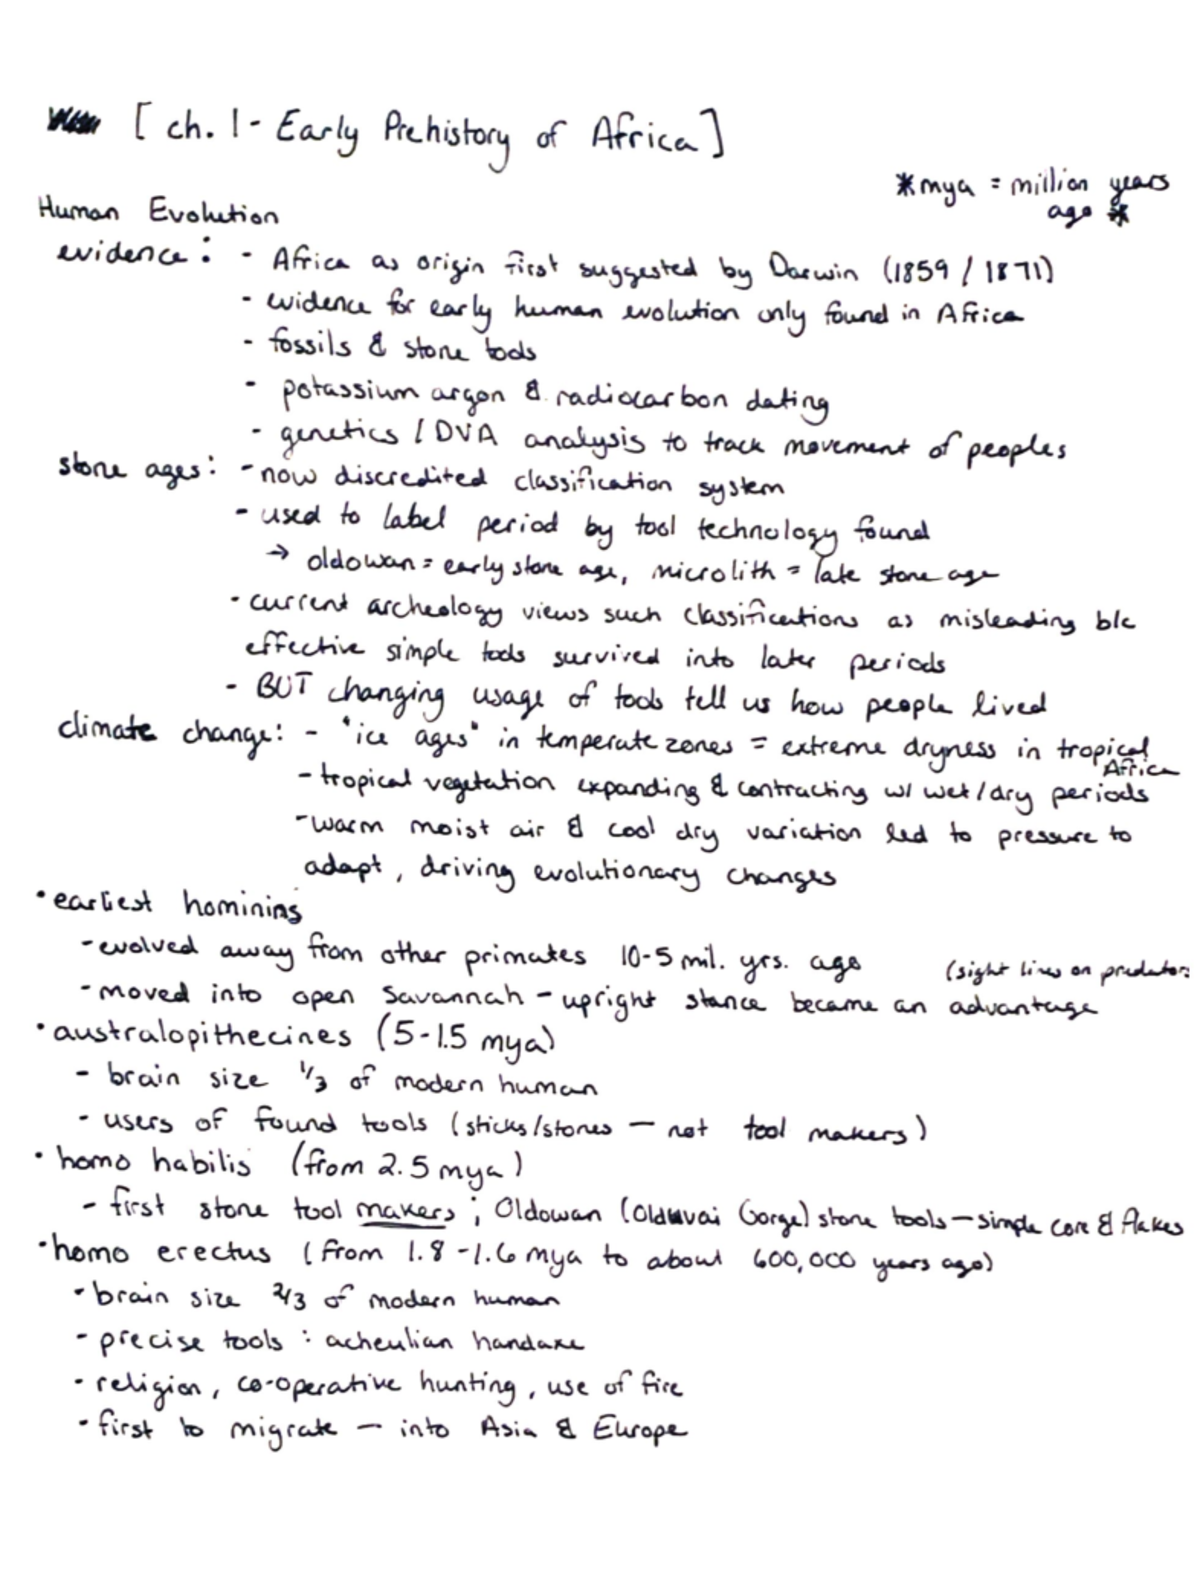 [ch. 1 - Early Prehistory of Africa]
*mya = million years
ago *
Human Evolution
evidence: - Africa as origin first suggested by Darwin (1859 / 1871)
- evidence for early human evolution only found in Africa
- fossils & stone tools
- potassium argon & radiocarbon dating
- genetics / DNA analysis to track movement of peoples
stone ages: - now discredited classification system
- used to label period by tool technology found
→ oldowan = early stone age, microlith = late stone age
- current archeology views such classifications as misleading b/c
effective simple tools survived into later periods
- BUT changing usage of tools tell us how people lived
climate change: - "ice ages" in temperate zones = extreme dryness in tropical
Africa
- tropical vegetation expanding & contracting w/ wet/dry periods
- warm moist air & cool dry variation led to pressure to
adapt, driving evolutionary changes
• earliest hominins
- evolved away from other primates 10-5 mil. yrs. ago
(sight lines on predators
- moved into open savannah - upright stance became an advantage
• australopithecines (5-1.5 mya)
- brain size 1/3 of modern human
- users of found tools (sticks/stones — not tool makers)
• homo habilis (from 2.5 mya)
- first stone tool makers; Oldowan (Olduvai Gorge) stone tools - simple core & flakes
• homo erectus (from 1.8 - 1.6 mya to about 600,000 years ago)
- brain size 2/3 of modern human
- precise tools : acheulian handaxe
- religion, co-operative hunting, use of fire
- first to migrate — into Asia & Europe